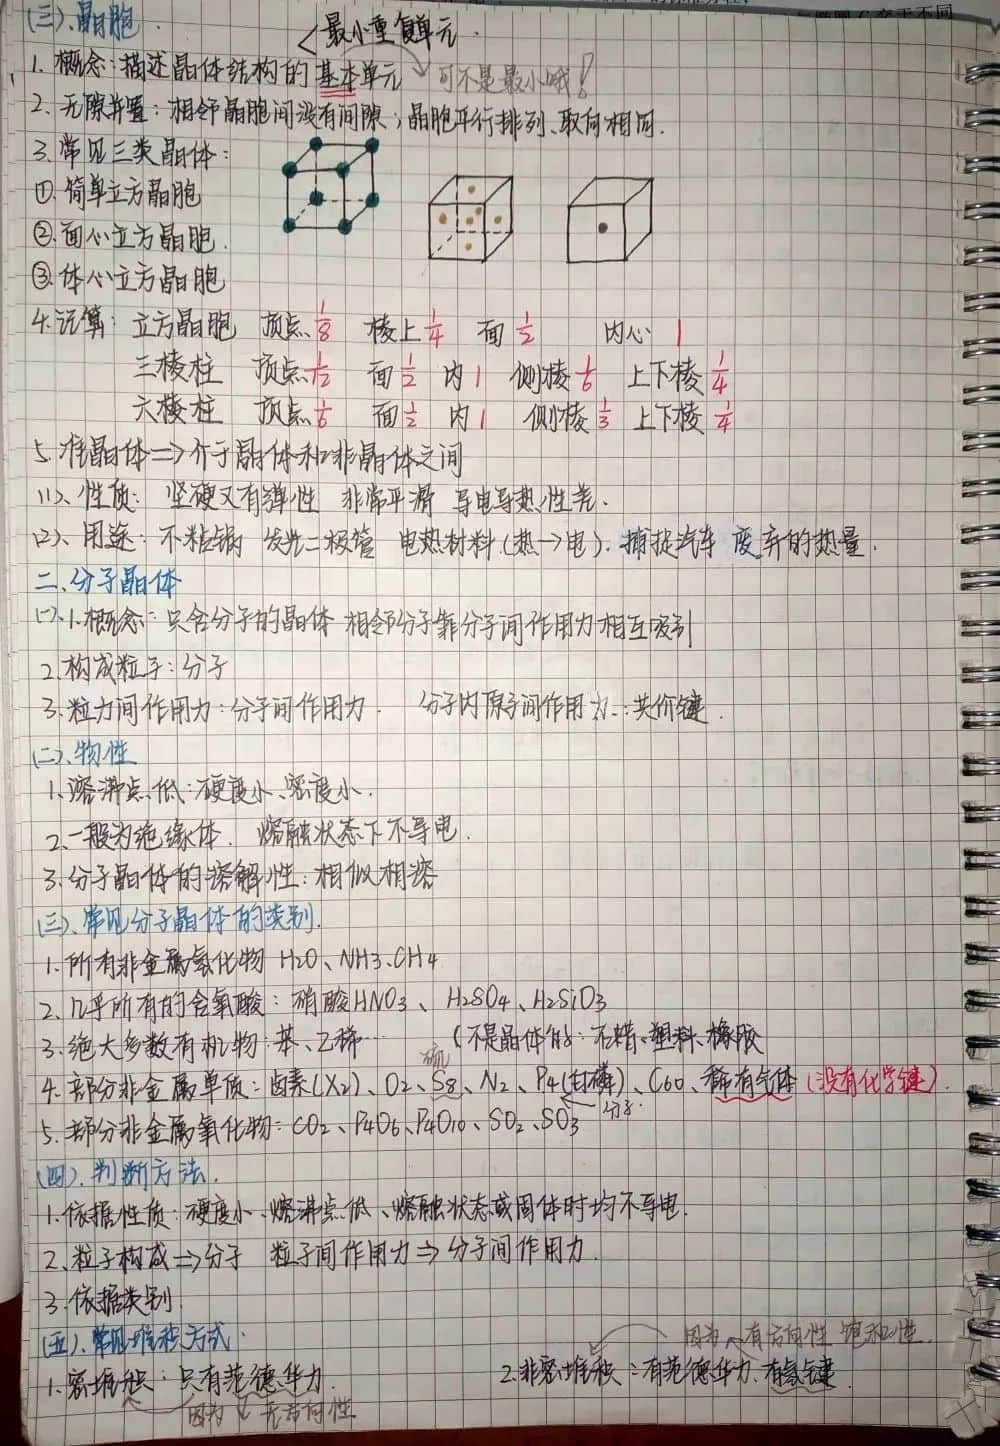 (三)、晶胞.
<最小重复单元.
1. 概念:描述晶体结构的基本单元 可不是最小哦!
2. 无隙并置:相邻晶胞间没有间隙;晶胞平行排列、取向相同.
3. 常见三类晶体:
①.简单立方晶胞
②.面心立方晶胞.
③.体心立方晶胞
4.计算: 立方晶胞 顶点 1/8 棱上 1/4 面 1/2 内心 1
三棱柱 顶点 1/12 面 1/2 内 1 侧棱 1/6 上下棱 1/4
六棱柱 顶点 1/6 面 1/2 内 1 侧棱 1/3 上下棱 1/4
5. 准晶体=>介于晶体和非晶体之间
(1)、性质: 坚硬又有弹性 非常平滑 导电导热性差.
(2)、用途: 不粘锅 发光二极管 电热材料(热→电). 捕捉汽车 废弃的热量.
二、分子晶体
(一).1.概念:只含分子的晶体 相邻分子靠分子间作用力相互吸引
2.构成粒子:分子
3.粒力间作用力:分子间作用力. 分子内原子间作用力:共价键.
(二)、物性
1.溶沸点低:硬度小、密度小.
2.一般为绝缘体. 熔融状态下不导电.
3.分子晶体的溶解性:相似相溶
(三)、常见分子晶体的类别.
1.所有非金属氢化物 H2O、NH3、CH4
2.几乎所有的含氧酸: 硝酸HNO3、H2SO4、H2SiO3
3.绝大多数有机物:苯、乙稀… (不是晶体的:石蜡、塑料、橡胶
硫
4.部分非金属单质:卤素(X2)、O2、S8、N2、P4(白磷)、C60、稀有气体(没有化学键).
分子.
5.部分非金属氧化物:CO2、P4O6、P4O10、SO2、SO3
(四).判断方法.
1.依据性质:硬度小、熔沸点低、熔融状态或固体时均不导电.
2.粒子构成=>分子 粒子间作用力=>分子间作用力.
3.依据类别.
(五).常见堆积方式.
因为 有方向性 饱和性.
1.密堆积:只有范德华力. 2.非密堆积:有范德华力、有氢键.
因为 无方向性